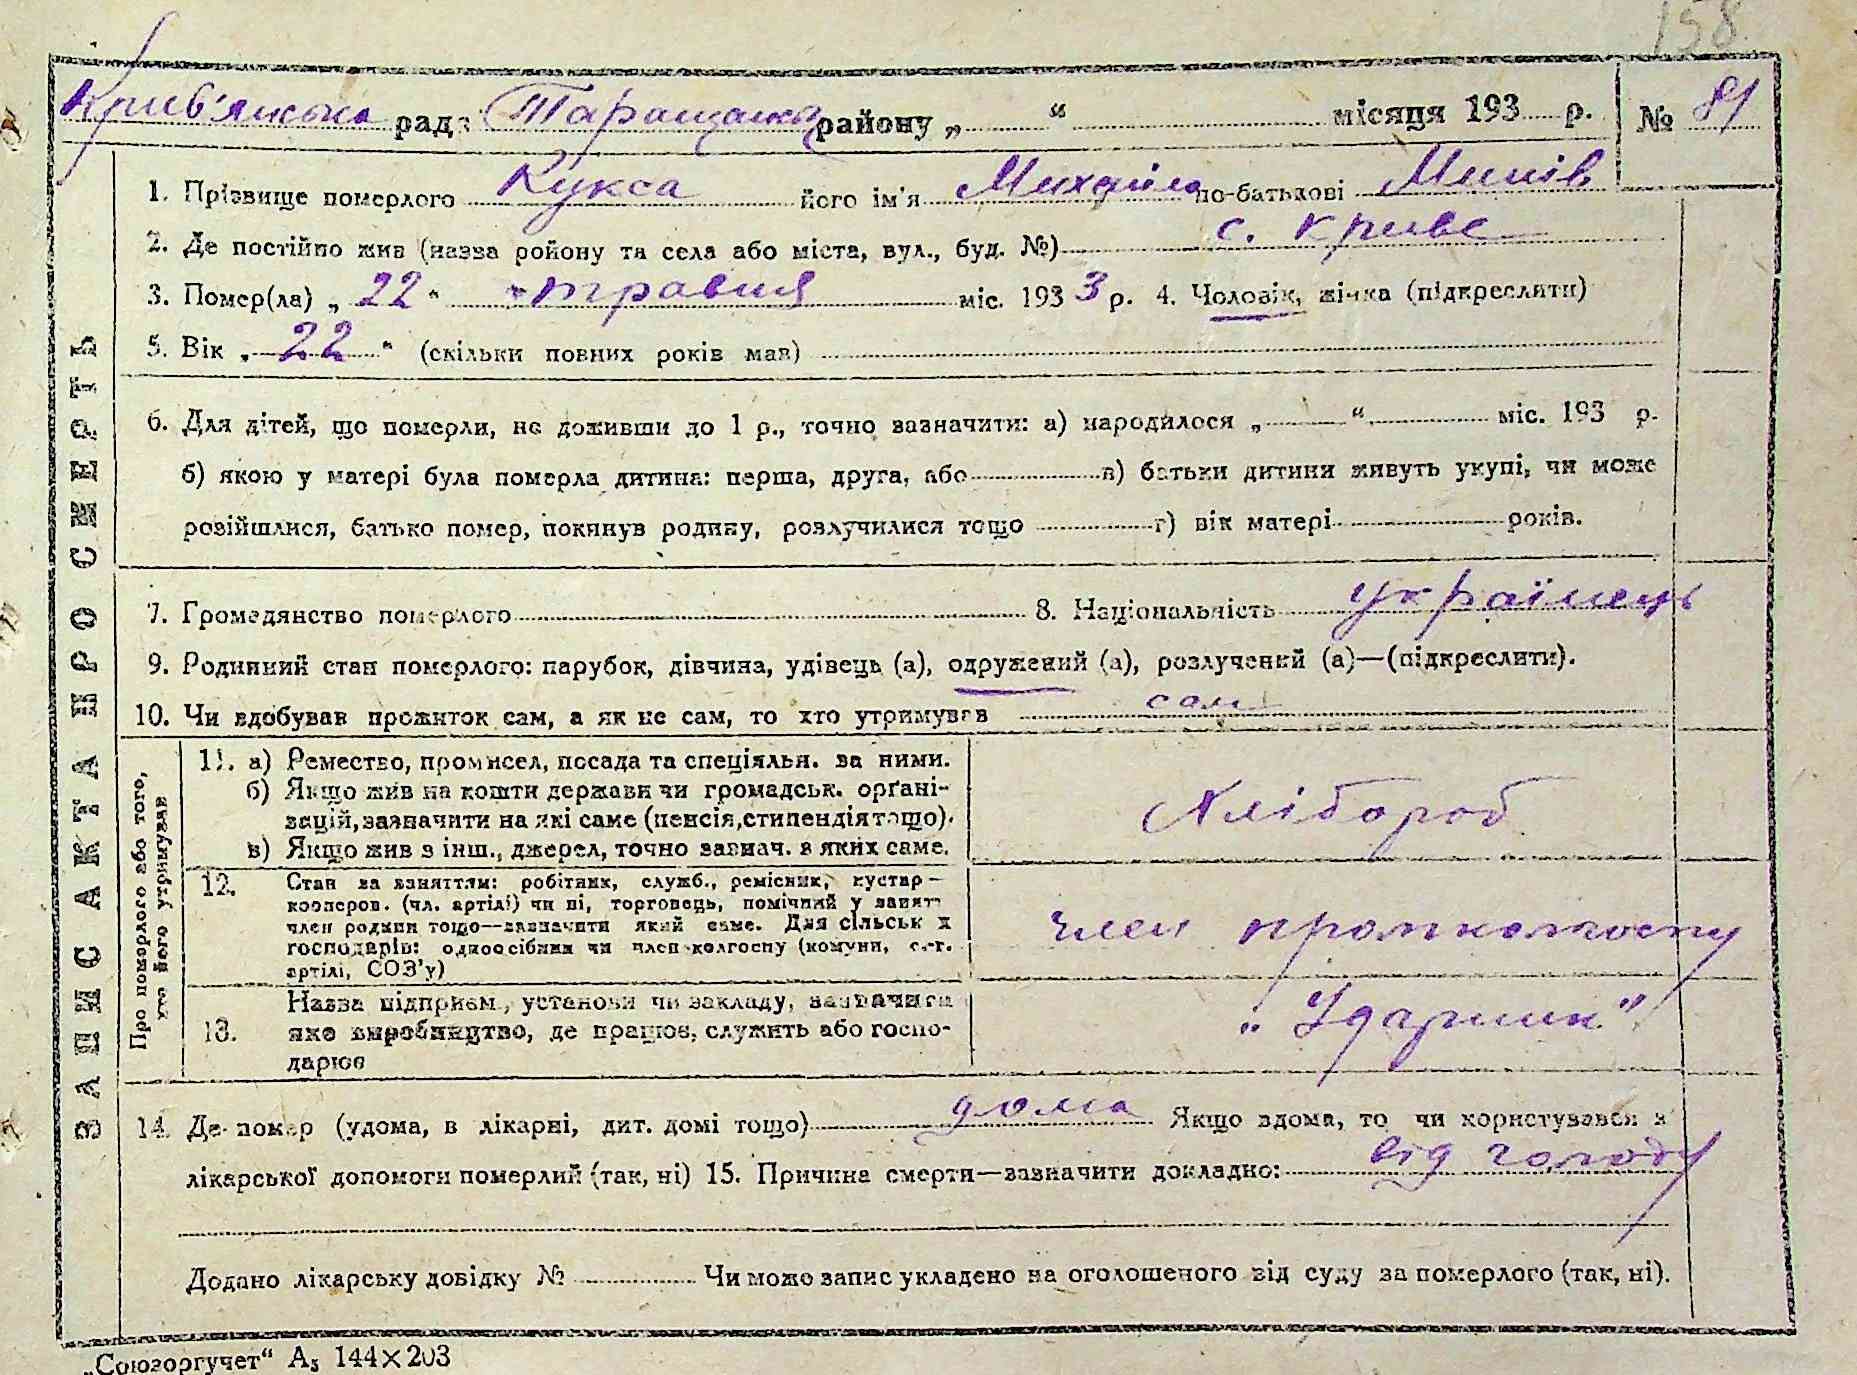 158
Крив'янська рада Таращанськ району „ “ місяця 193 р. № 81
1. Прізвище померлого Кукса його ім'я Михайло по-батькові Минів
2. Де постійно жив (назва ройону та села або міста, вул., буд. №) с. Криве
3. Помер(ла) „ 22 “ травня міс. 1933 р. 4. Чоловік, жінка (підкреслити)
5. Вік „ 22 “ (скільки повних років мав)
6. Для дітей, що померли, не доживши до 1 р., точно зазначити: а) народилося „ “ міс. 193 р.
б) якою у матері була померла дитина: перша, друга, або в) батьки дитини живуть укупі, чи може
розійшлися, батько помер, покинув родину, розлучилися тощо г) вік матері років.
7. Громадянство померлого 8. Національність українець
9. Родинний стан померлого: парубок, дівчина, удівець (а), одружений (а), розлучений (а)—(підкреслити).
10. Чи здобував прожиток сам, а як не сам, то хто утримував сам
ЗАПИС АКТА ПРО СМЕРТЬ
Про померлого або того,
хто його утримував
11. а) Ремество, промисел, посада та спеціяльн. за ними.
б) Якщо жив на кошти держави чи громадськ. орґані-
зацій, зазначити на які саме (пенсія, стипендія тощо).
в) Якщо жив з інш., джерел, точно зазнач. з яких саме.
Хлібороб
12. Стан за заняттям: робітник, служб., ремісник, кустар—
кооперов. (чл. артілі) чи ні, торговець, помічний у занят
член родини тощо—зазначити який саме. Для сільськ х
господарів: одноосібник чи член колгоспу (комуни, с.-г.
артілі, СОЗ'у)
член промколгоспу
13. Назва підприєм., установи чи закладу, зазначити
яке виробництво, де працює, служить або госпо-
дарює
„Ударник“
14. Де помер (удома, в лікарні, дит. домі тощо) дома Якщо вдома, то чи користувався з
лікарської допомоги померлий (так, ні) 15. Причина смерти—зазначити докладно: від голоду
Додано лікарську довідку № Чи може запис укладено на оголошеного від суду за померлого (так, ні).
„Союзоргучет“ А5 144×203